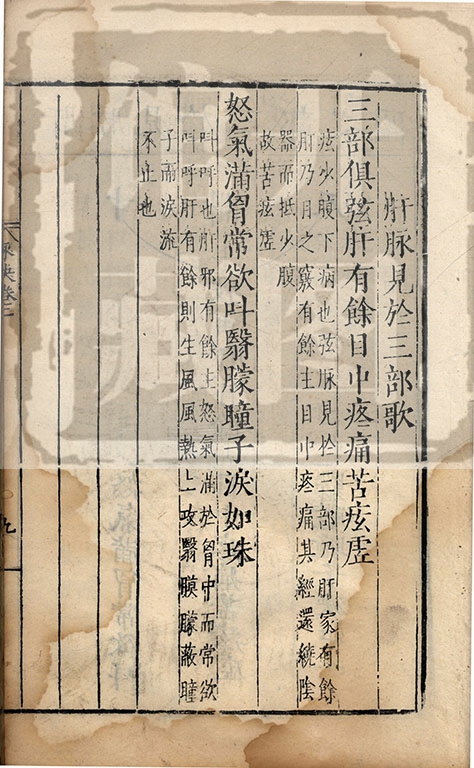 肝脉見於三部歌
三部俱弦肝有餘目中疼痛苦痃虚
痃少腹下病也弦脉見於三部乃肝家有餘
肝乃目之竅有餘主目中疼痛其經還繞陰
器而抵少腹
故苦痃虚
怒氣滿胷常欲叫翳朦瞳子淚如珠
叫呼也肝邪有餘主怒氣滿於胷中而常欲
叫呼肝有餘則生風風熱上攻翳膜朦蔽瞳
子而淚流
不止也
脉訣卷三
九